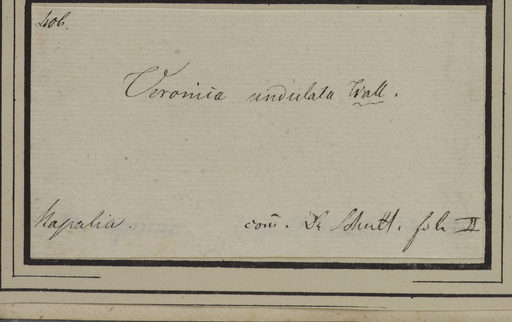 406.
Veronica undulata Wall.
Napalia. com̄. Dr Schult. fil. II